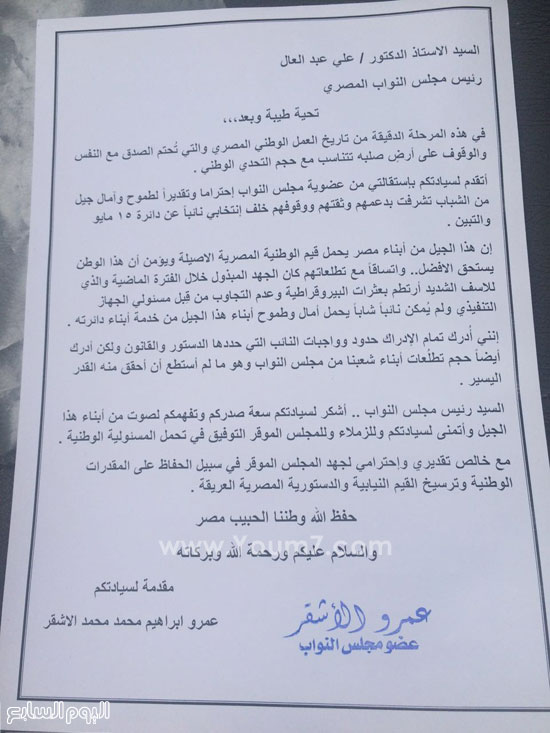 السيد الاستاذ الدكتور / علي عبد العال
رئيس مجلس النواب المصري
تحية طيبة وبعد،،،
في هذه المرحلة الدقيقة من تاريخ العمل الوطني المصري والتي تُحتم الصدق مع النفس
والوقوف على أرض صلبه تتناسب مع حجم التحدي الوطني .
أتقدم لسيادتكم بإستقالتي من عضوية مجلس النواب إحتراما وتقديراً لطموح وآمال جيل
من الشباب تشرفت بدعمهم وثقتهم ووقوفهم خلف إنتخابي نائباً عن دائرة ١٥ مايو
والتبين .
إن هذا الجيل من أبناء مصر يحمل قيم الوطنية المصرية الاصيلة ويؤمن أن هذا الوطن
يستحق الافضل.. واتساقاً مع تطلعاتهم كان الجهد المبذول خلال الفترة الماضية والذي
للاسف الشديد أرتطم بعثرات البيروقراطية وعدم التجاوب من قبل مسئولي الجهاز
التنفيذي ولم يُمكن نائباً شاباً يحمل أمال وطموح أبناء هذا الجيل من خدمة أبناء دائرته .
إنني أُدرك تمام الإدراك حدود وواجبات النائب التي حددها الدستور والقانون ولكن أدرك
أيضاً حجم تطلُعات أبناء شعبنا من مجلس النواب وهو ما لم أستطع أن أحقق منه القدر
اليسير .
السيد رئيس مجلس النواب .. أشكر لسيادتكم سعة صدركم وتفهمكم لصوت من أبناء هذا
الجيل وأتمنى لسيادتكم وللزملاء وللمجلس الموقر التوفيق في تحمل المسئولية الوطنية .
مع خالص تقديري وإحترامي لجهد المجلس الموقر في سبيل الحفاظ على المقدرات
الوطنية وترسيخ القيم النيابية والدستورية المصرية العريقة .
حفظ الله وطننا الحبيب مصر
والسلام عليكم ورحمة الله وبركاته
www.Youm7.com
مقدمة لسيادتكم
عمرو ابراهيم محمد محمد الاشقر
عمرو الأشقر
عضو مجلس النواب
اليوم السابع